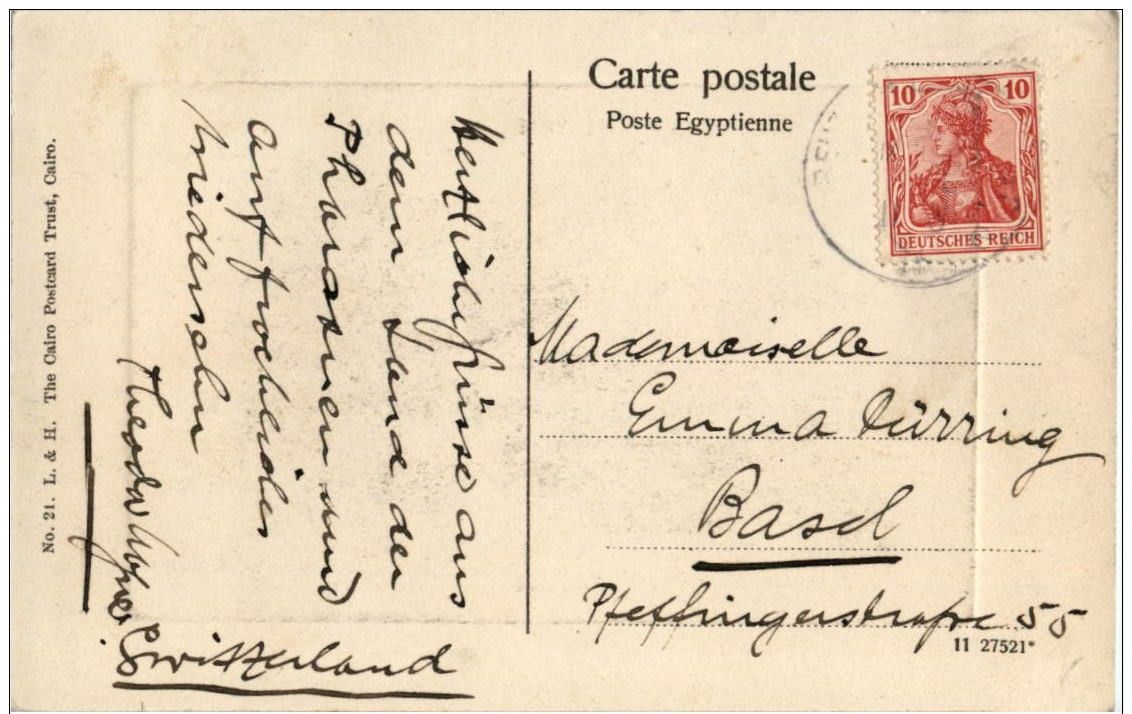 Carte postale
Poste Egyptienne
10 10
DEUTSCHES REICH
Mademoiselle
Emma Dürring
Basel
Pfeffingerstrasse 55
Switzerland
11 27521*
Herzliche Grüsse aus
dem Lande der
Pharaonen und
auf fröhliches
Wiedersehn
Theodor
No. 21. L. & H. The Cairo Postcard Trust, Cairo.